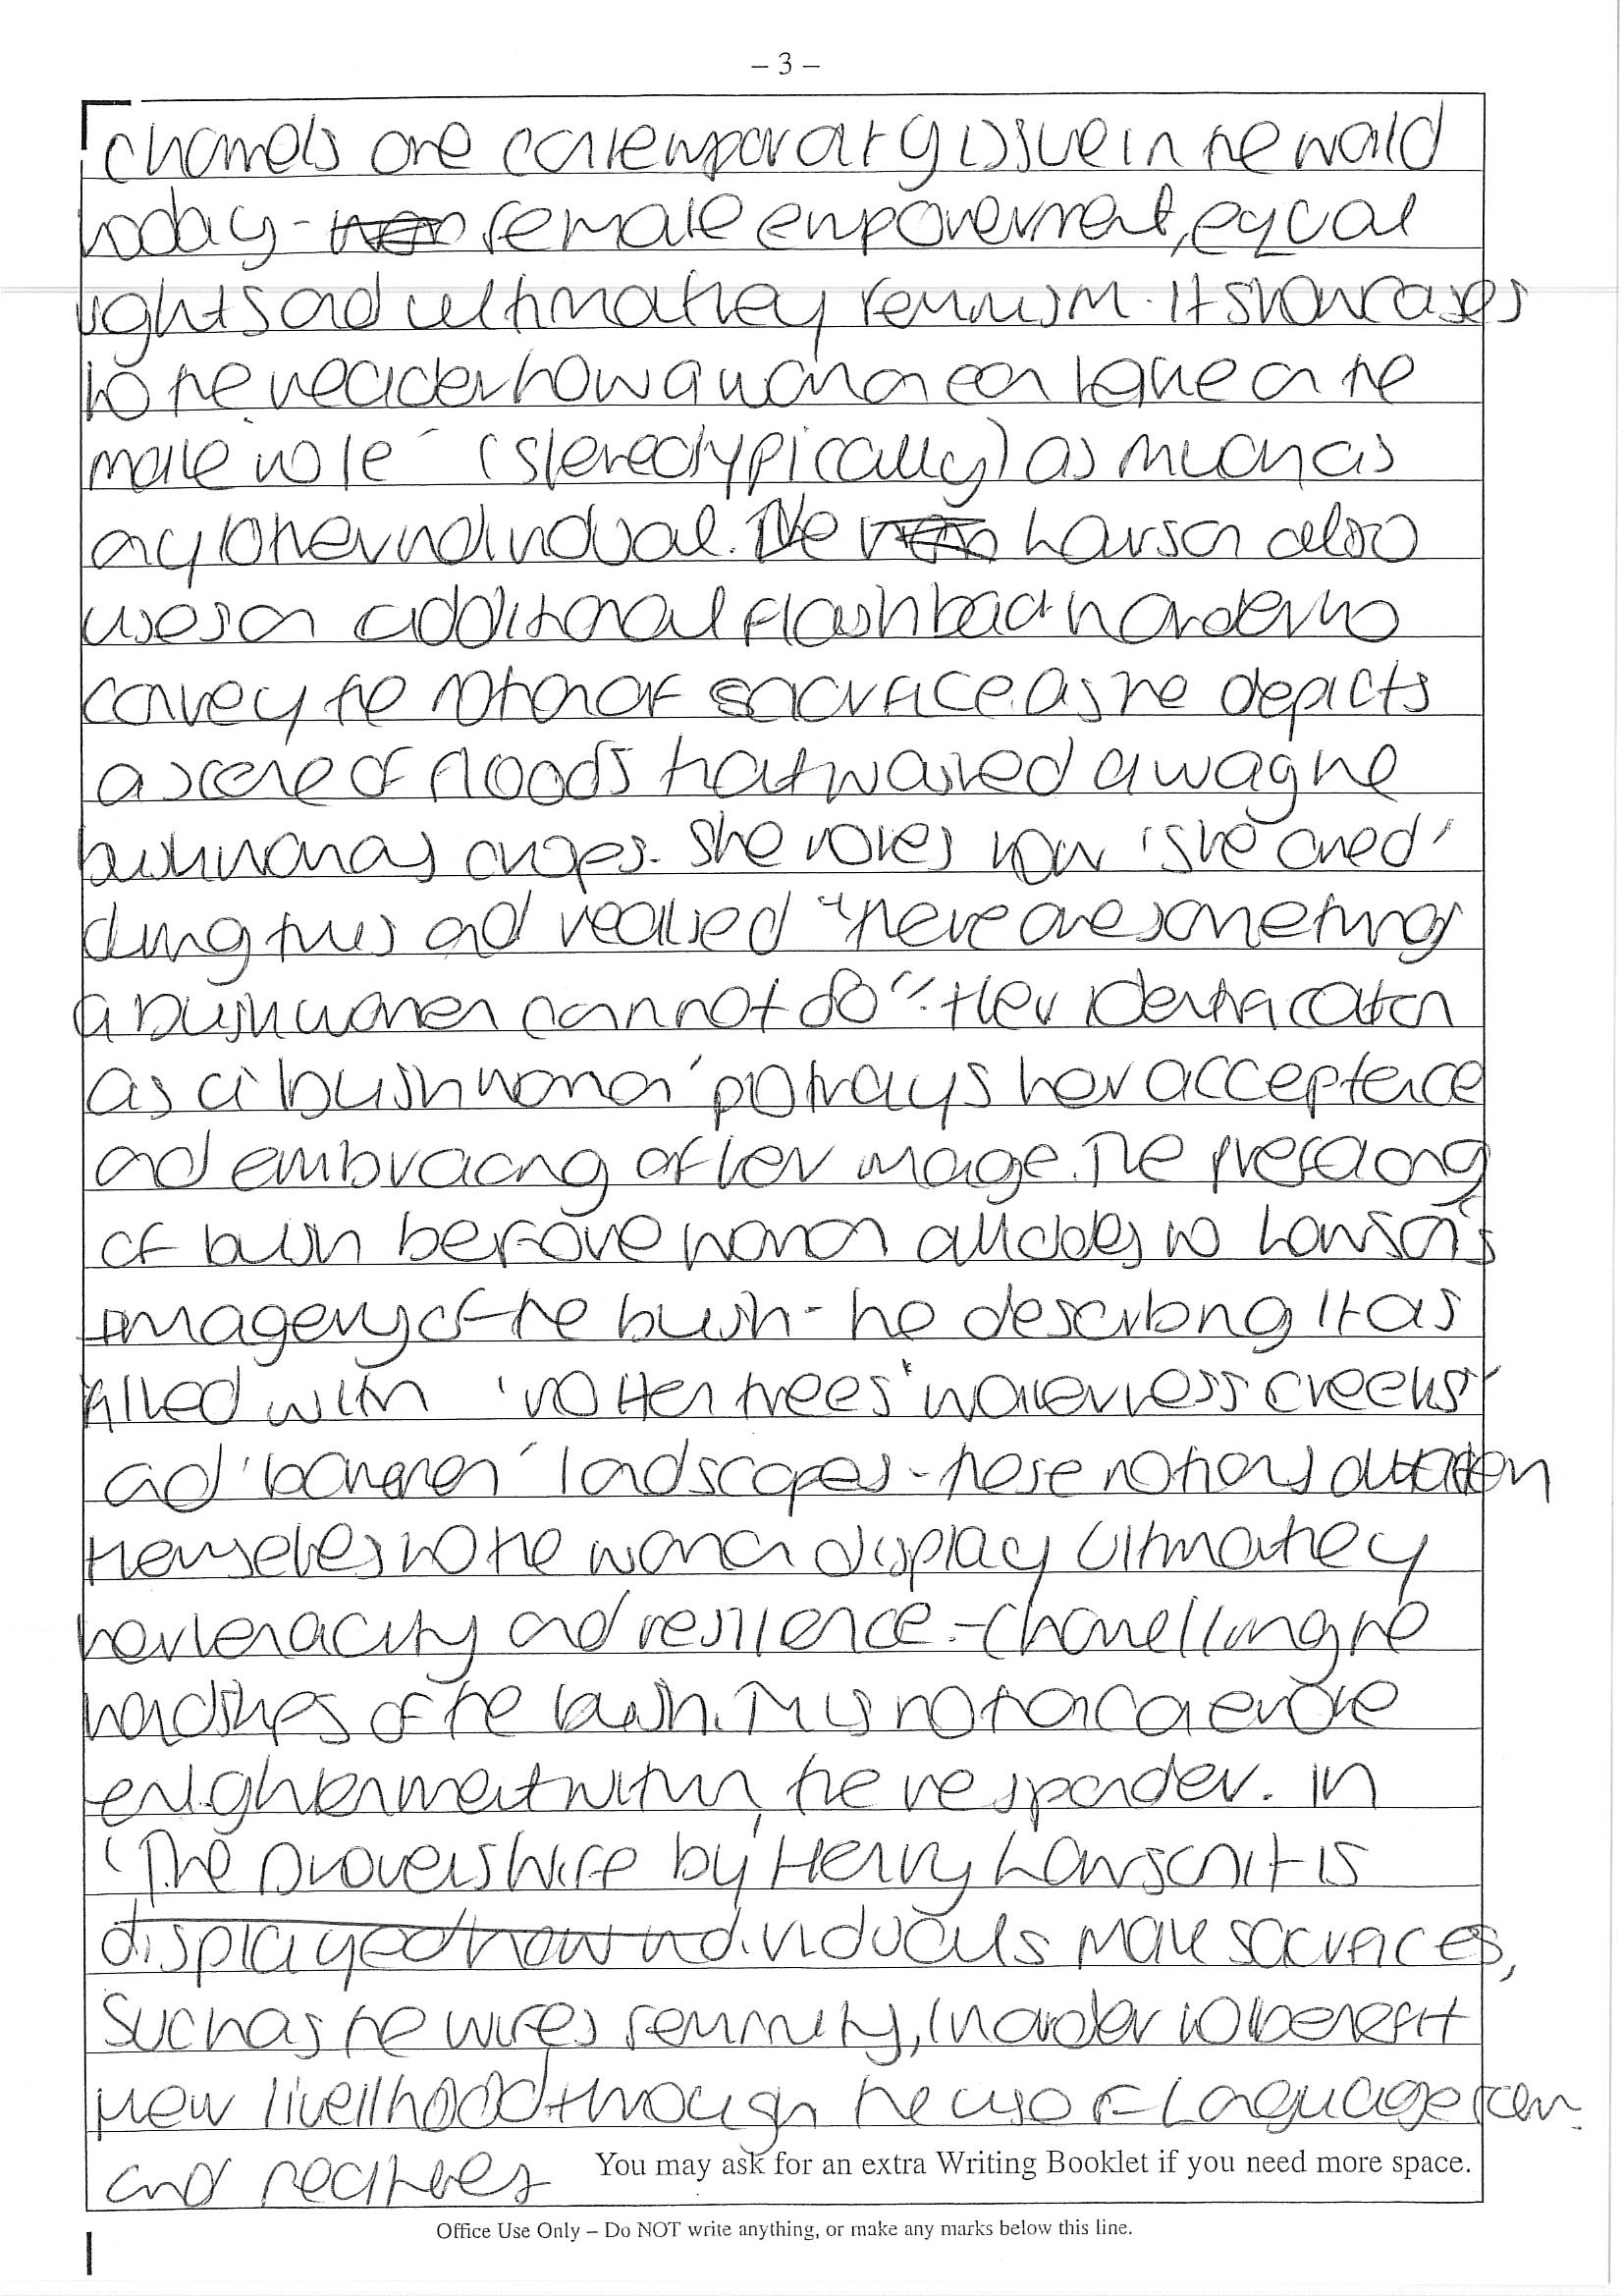 – 3 –
channels one contemporary issue in the world
today - female empowerment, equal
rights and ultimatley feminism. It showcases
to the reader how a woman can take on the
male role' (stereotypically) as much as
any other individual. The Lawson also
uses an additional flashback in order to
convey the notion of sacrifice as he depicts
a scene of floods that washed away the
bushwomans crops. She notes how 'she cried'
during this and realised "there are some things
a bushwoman cannot do". Her identification
as a 'bushwoman' potrays her acceptence
and embracing of her image. The prefacing
of bush before woman alludes to Lawson's
imagery of the bush - he describing it as
filled with 'rotten trees' 'waterless creeks'
and 'barren' landscapes - these notions attatch
themselves to the woman display ultimatley
her tenacity and resilience - channelling the
hardships of the bush. This notion can evoke
enlightenment within the responder. In
'The Drovers Wife' by Henry Lawson it is
displayed how individuals make sacrifices,
such as the wifes feminity, in order to benefit
their livelihood through the use of language form
and features
You may ask for an extra Writing Booklet if you need more space.
Office Use Only – Do NOT write anything, or make any marks below this line.